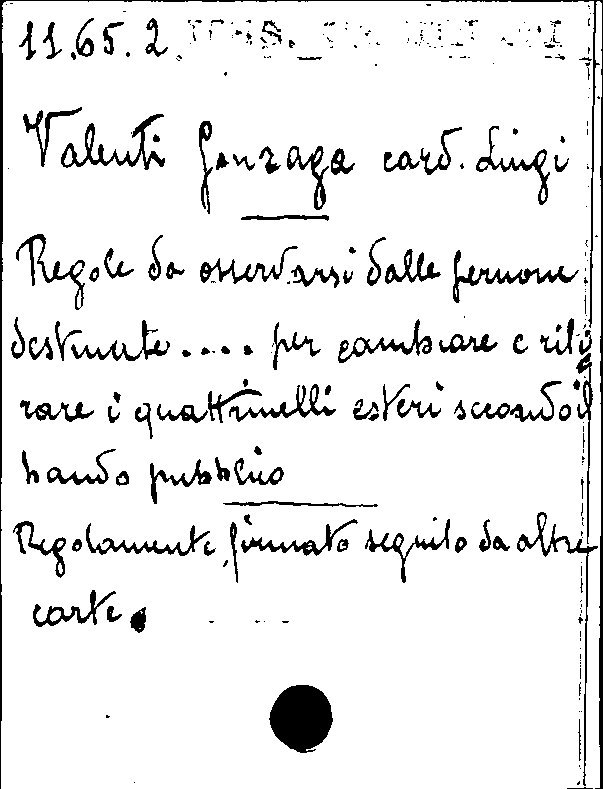 11.65.2
Valenti Gonzaga card. Luigi
Regole da osservarsi dalle persone
destinate .... per cambiare e riti
rare i quattrinelli esteri secondo il
bando pubblico
Regolamento firmato seguito da altre
carte.